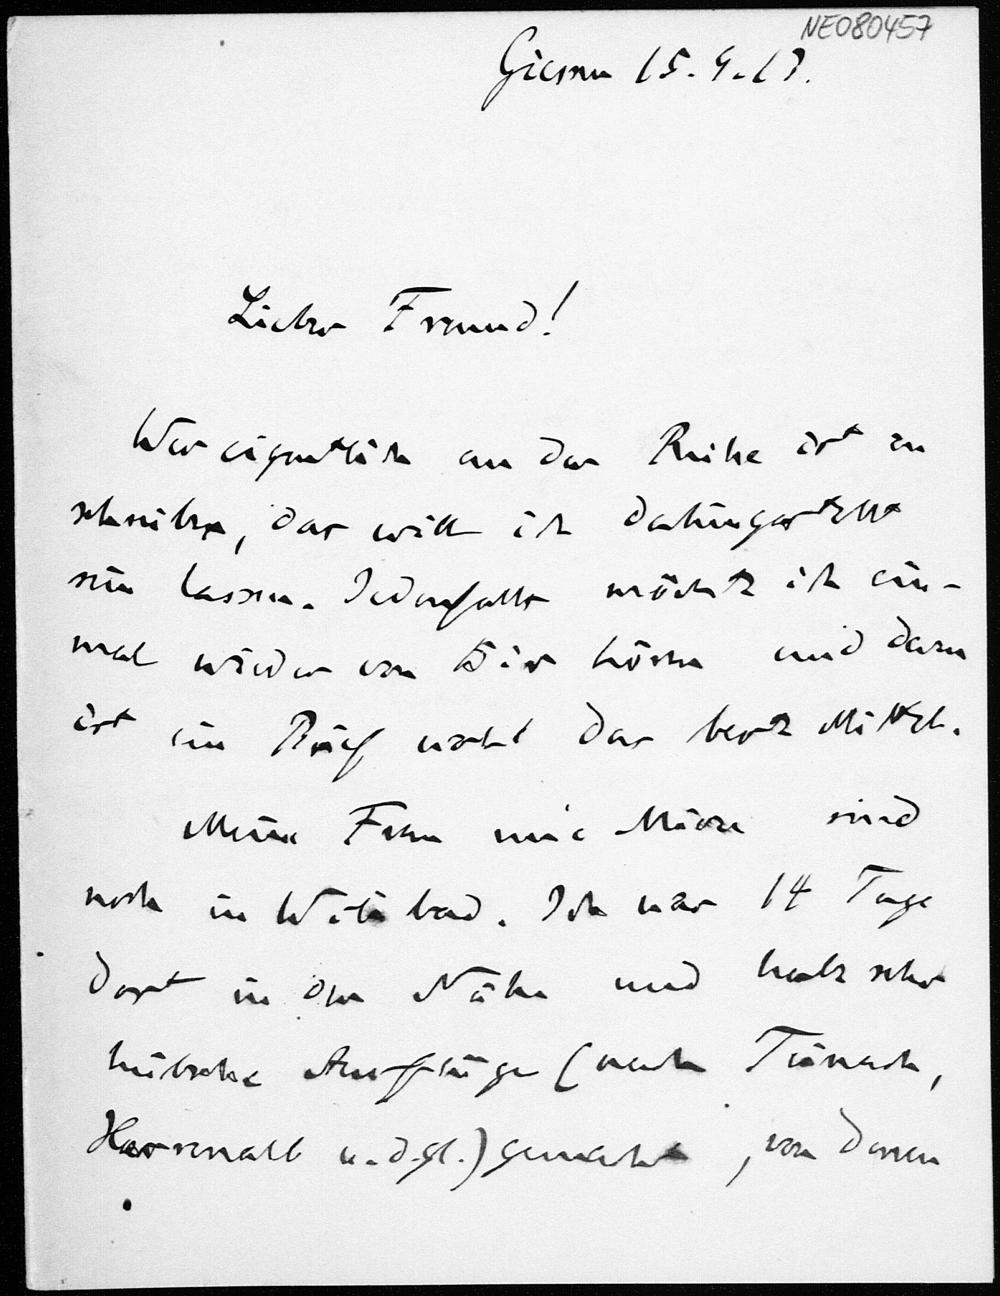 NE080457
Giessen 15.4.13.
Lieber Freund!
Wer eigentlich an der Reihe ist zu
schreiben, das will ich dahingestellt
sein lassen. Jedenfalls möchte ich ein-
mal wieder von Dir hören und dazu
ist ein Brief wohl das beste Mittel.
Meine Frau und sind
noch in Wildbad. Ich war 14 Tage
dort in der Nähe und habe sehr
hübsche Ausflüge (nach Teinach,
Herrenalb u. dgl.) gemacht, von denen